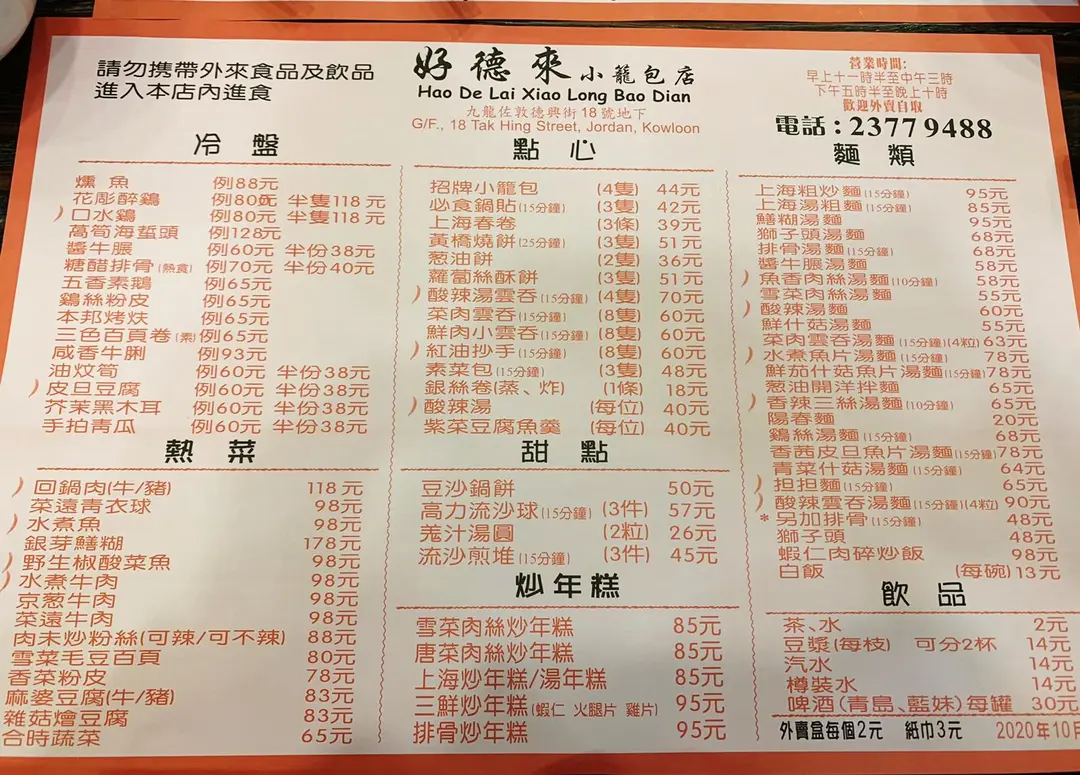 請勿攜帶外來食品及飲品
進入本店內進食
好德來小籠包店
Hao De Lai Xiao Long Bao Dian
九龍佐敦德興街18號地下
G/F., 18 Tak Hing Street, Jordan, Kowloon
營業時間:
早上十一時半至中午三時
下午五時半至晚上十時
歡迎外賣自取
電話:2377 9488
冷盤
燻魚 例88元
花彫醉鷄 例80元 半隻118元
)口水鷄 例80元 半隻118元
萵筍海蜇頭 例128元
醬牛𦟌 例60元 半份38元
糖醋排骨(熱食) 例70元 半份40元
五香素鵝 例65元
鷄絲粉皮 例65元
本邦烤炋 例65元
三色百頁卷(素) 例65元
咸香牛脷 例93元
油炆筍 例60元 半份38元
)皮旦豆腐 例60元 半份38元
芥茉黑木耳 例60元 半份38元
手拍青瓜 例60元 半份38元
熱菜
)回鍋肉(牛/豬) 118元
菜遠青衣球 98元
)水煮魚 98元
銀芽鱔糊 178元
)野生椒酸菜魚 98元
)水煮牛肉 98元
京葱牛肉 98元
菜遠牛肉 98元
肉末炒粉絲(可辣/可不辣) 88元
雪菜毛豆百頁 80元
香菜粉皮 78元
麻婆豆腐(牛/豬) 83元
雜菇燴豆腐 83元
合時蔬菜 65元
點心
招牌小籠包 (4隻) 44元
必食鍋貼(15分鐘) (3隻) 42元
上海春卷 (3條) 39元
黃橋燒餅(25分鐘) (3隻) 51元
葱油餅 (2隻) 36元
蘿蔔絲酥餅 (3隻) 51元
)酸辣湯雲吞(15分鐘) (4隻) 70元
菜肉雲吞(15分鐘) (8隻) 60元
鮮肉小雲吞(15分鐘) (8隻) 60元
)紅油抄手(15分鐘) (8隻) 60元
素菜包(15分鐘) (3隻) 48元
銀絲卷(蒸、炸) (1條) 18元
)酸辣湯 (每位) 40元
紫菜豆腐魚羹 (每位) 40元
甜點
豆沙鍋餅 50元
高力流沙球(15分鐘) (3件) 57元
羗汁湯圓 (2粒) 26元
流沙煎堆(15分鐘) (3件) 45元
炒年糕
雪菜肉絲炒年糕 85元
唐菜肉絲炒年糕 85元
上海炒年糕/湯年糕 85元
三鮮炒年糕(蝦仁 火腿片 雞片) 95元
排骨炒年糕 95元
麵類
上海粗炒麵(15分鐘) 95元
上海湯粗麵(15分鐘) 85元
鱔糊湯麵 95元
獅子頭湯麵 68元
排骨湯麵(15分鐘) 68元
醬牛𦟌湯麵 58元
)魚香肉絲湯麵(10分鐘) 58元
雪菜肉絲湯麵 55元
)酸辣湯麵 60元
鮮什菇湯麵 55元
菜肉雲吞湯麵(15分鐘)(4粒) 63元
)水煮魚片湯麵(15分鐘) 78元
鮮茄什菇魚片湯麵(15分鐘) 78元
葱油開洋拌麵 65元
)香辣三絲湯麵(10分鐘) 65元
陽春麵 20元
鷄絲湯麵(15分鐘) 68元
香茜皮旦魚片湯麵(15分鐘) 78元
青菜什菇湯麵(15分鐘) 64元
)担担麵(15分鐘) 65元
)酸辣雲吞湯麵(15分鐘)(4粒) 90元
*另加排骨(15分鐘) 48元
獅子頭 48元
蝦仁肉碎炒飯 98元
白飯 (每碗) 13元
飲品
茶、水 2元
豆漿(每枝) 可分2杯 14元
汽水 14元
樽裝水 14元
啤酒(青島、藍妹)每罐 30元
外賣盒每個2元 紙巾3元 2020年10月